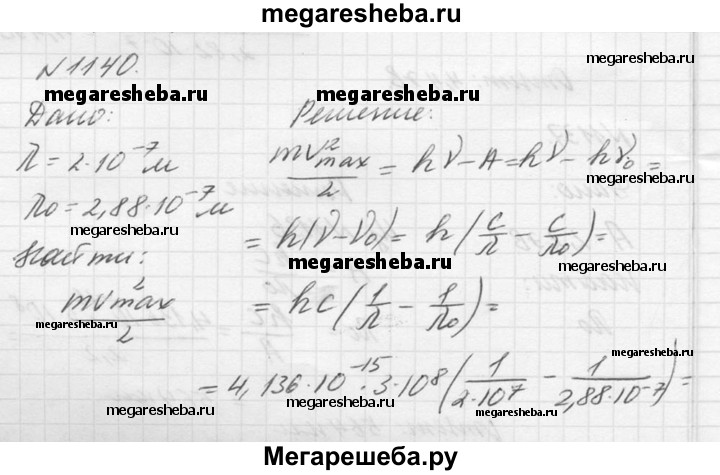 megaresheba.ru
N 1140.
megaresheba.ru
megaresheba.ru
Дано:
Решение:
megaresheba.ru
λ = 2·10⁻⁷ м
mv²max/2 = hν - A = hν - hν₀ =
megaresheba.ru
λ₀ = 2,88·10⁻⁷ м
megaresheba.ru
= h(ν - ν₀) = h(c/λ - c/λ₀) =
Найти:
megaresheba.ru
megaresheba.ru
mv²max/2
= hc(1/λ - 1/λ₀) =
megaresheba.ru
megaresheba.ru
megaresheba.ru
= 4,136·10⁻¹⁵·3·10⁸(1/2·10⁷ - 1/2,88·10⁻⁷) =
megaresheba.ru
megaresheba.ru
megaresheba.ru
Мегарешеба.ру